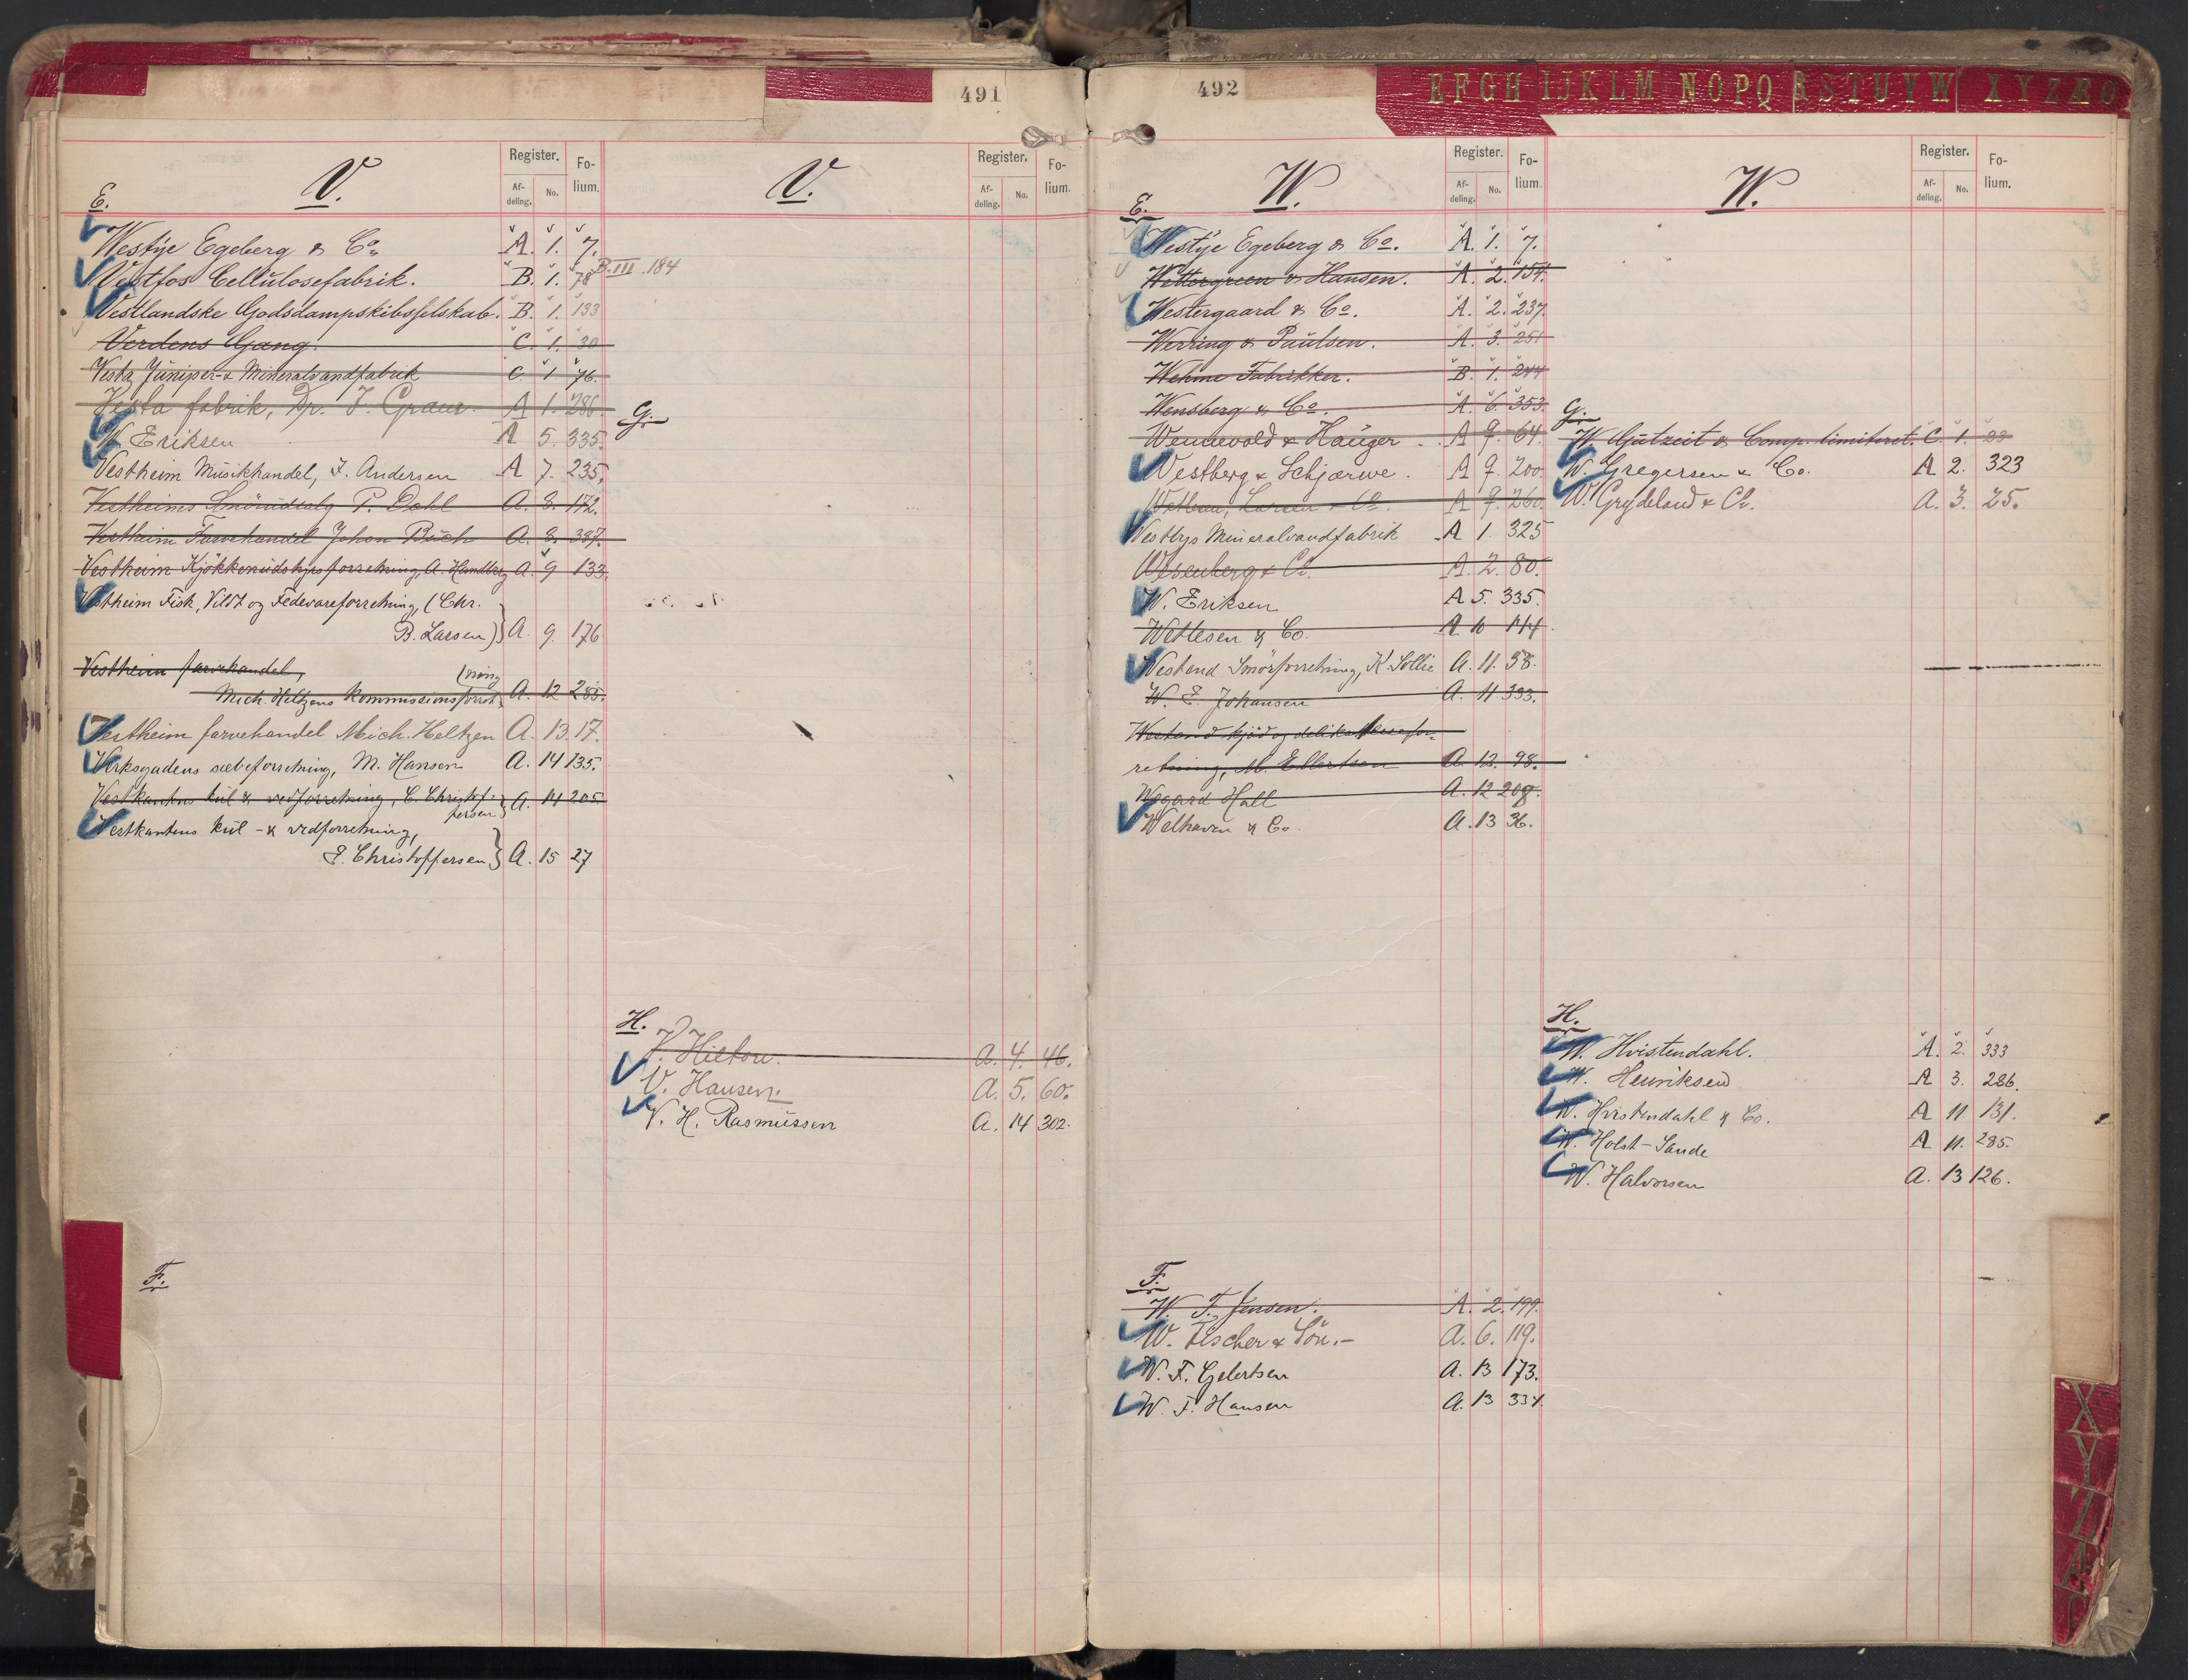 491
V.
Register. Fo-
Af- No. lium.
deling.
E.
Westye Egeberg & Co. A. 1. 7.
Vestfos Cellulosefabrik. B. 1. 78 B.III.184
Vestlandske Godsdampskibsselskab. B. 1. 193
Verdens Gang. C. 1. 30
Vesta Juniper- & Mineralvandfabrik C 1 76.
Vesta fabrik, Dr. F. Graur. A 1. 286.
W Eriksen A 5. 335.
Vestheim Musikhandel, J. Andersen A 7. 235.
Vestheims Smörudsalg P. Dahl A. 8. 172.
Vestheim Farvehandel Johan Buch A. 8. 387.
Vestheim Kjökkenudstyrsforretning, A. Handberg A. 9 133.
Vestheim Fisk, Vildt og Fedevareforretning, (Chr.
B. Larsen) A. 9. 176
Vestheim farvehandel, (ning
Mich. Heltzens Kommissionsforret A. 12 285.
Vestheim farvehandel Mich. Heltzen A. 13. 17.
Verksgadens sæbeforretning, M. Hansen A. 14 135.
Vestkantens kul & vedforretning, C. Christof-
fersen A. 14 205.
Vestkantens kul- & vedforretning,
E. Christoffersen A. 15 27
F.
V.
Register. Fo-
Af- No. lium.
deling.
G.
H.
V. Hilton. A. 4. 46.
V. Hansen. A. 5. 60.
V. H. Rasmussen A. 14 302.
492
EFGH IJKLM NOPQ RSTUVW XYZÆØ
W.
Register. Fo-
Af- No. lium.
deling.
E.
Westye Egeberg & Co. A. 1. 7.
Wettergreen & Hansen. A. 2. 154.
Westergaard & Co. A. 2. 237.
Werring & Paulsen. A. 3. 251
Wehme Fabrikker. B. 1. 244
Wensberg & Co. A. 6. 353.
Wennevold & Hauger. A 7. 64.
Westberg & Schjærve. A 7. 200.
Larsen & Co. A 7. 260.
Westbys Mineralvandfabrik A 1. 325
Wesenberg & Co. A. 2. 80.
W. Eriksen A 5. 335.
Wettesen & Co. A 10 144.
Westend Smörforretning, K. Sollie A. 11. 58.
W. E. Johansen A. 11 393.
Westend kjöd og delikatessefor-
retning, M. Ellertsen A. 12. 98.
Wegard Hall A. 12 208.
Welhaven & Co. A. 13 36.
F.
W. F. Jensen. A. 2. 199.
W. Fischer & Sön.- A. 6. 119.
W. F. Gjelertsen A. 13 173.
W. F. Hansen A. 13 334.
W.
Register. Fo-
Af- No. lium.
deling.
G.
W. Gutzeit & Comp. limiteret. C. 1. 88
W. Gregersen & Co. A 2. 323
W. Grydeland & Co. A. 3. 25.
H.
W. Hvistendahl. A. 2. 333
W. Henriksen A 3. 286.
W. Hvistendahl & Co. A 11. 131.
W. Holst-Sande A 11. 285.
W. Halvorsen A. 13 126.
X
Y
Z
Æ